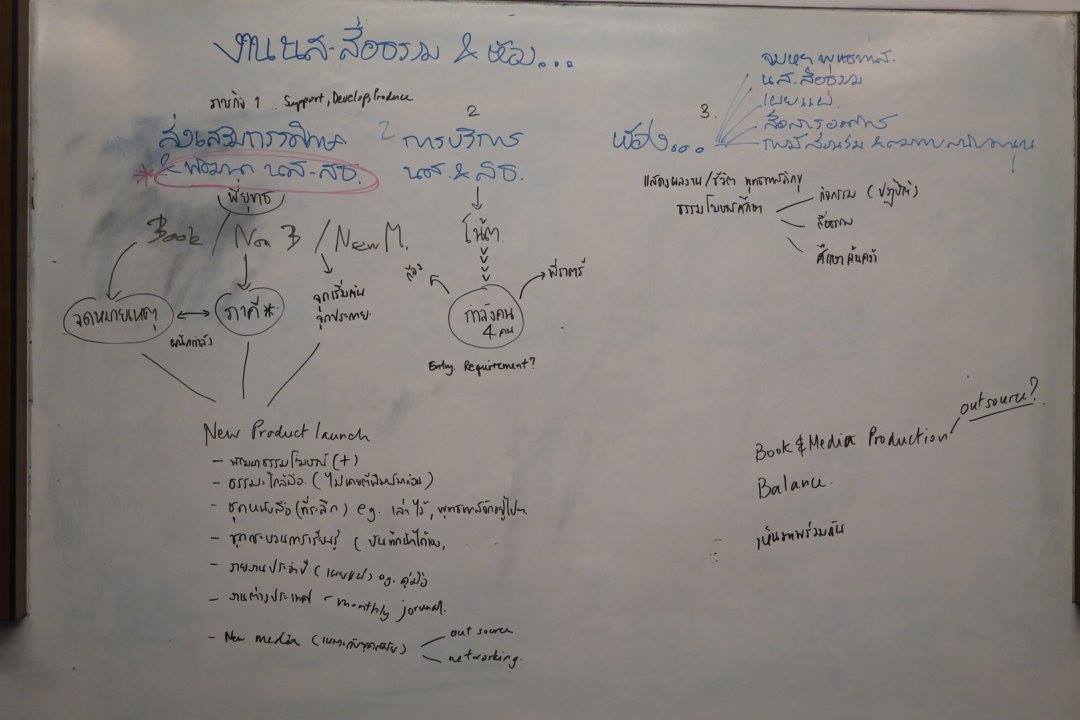 งาน นส-สื่อธรรม & ห้อง...
ภารกิจ 1 Support, Develop, Produce
ส่งเสริมการศึกษา
* & พัฒนา นส-สธ.
พี่ยุทธ
Book / Non B / New M.
จดหมายเหตุ
ภาคี*
ผนึกกำลัง
จุดเริ่มต้น
จุดประกาย
2
2 การบริการ
นส. & สธ.
โน้ต
กำลังคน
4 คน
พี่ราตรี
Entry Requirement?
New Product launch
- พัฒนาธรรมโฆษณ์ (+)
- ธรรมะใกล้มือ (ไม่เคยตีพิมพ์มาก่อน)
- ชุดหนังสือ (ที่ระลึก) eg. เล่าไว้, พุทธทาสจักอยู่ไปฯ
- ชุดกระบวนการเรียนรู้ (บันทึกนึกได้เอง,
- รายงานประจำปี (เผยแผ่) eg. คู่มือ
- งานต่างประเทศ - monthly journal.
- New media (เหมาะกับยุคสมัย)
out source
networking.
3.
ห้อง...
จดหมายเหตุพุทธทาส.
นส. สื่อธรรม
เผยแผ่.
สื่อสารองค์กร
การมีส่วนร่วม &
แสดงผลงาน/ชีวิต พุทธทาสภิกขุ
ธรรมโฆษณ์ศึกษา
กิจกรรม (ปฏิบัติ)
สื่อธรรม
ศึกษาค้นคว้า
outsource?
Book & Media Production
Balance.
เห็นภาพร่วมกัน